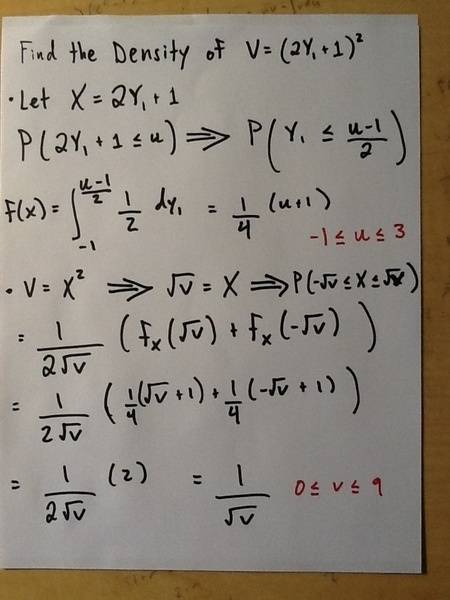 Find the Density of V=(2Y₁+1)²
• Let X = 2Y₁+1
P(2Y₁+1≤u) ⟹ P(Y₁ ≤ (u-1)/2)
F(x) = ∫_{-1}^{(u-1)/2} 1/2 dy₁ = 1/4 (u+1)
-1 ≤ u ≤ 3
• V = X² ⟹ √v = X ⟹ P(-√v ≤ X ≤ √v)
= 1/(2√v) (f_x(√v) + f_x(-√v))
= 1/(2√v) (1/4(√v+1) + 1/4(-√v+1))
= 1/(2√v) (2) = 1/√v 0≤ v ≤ 9